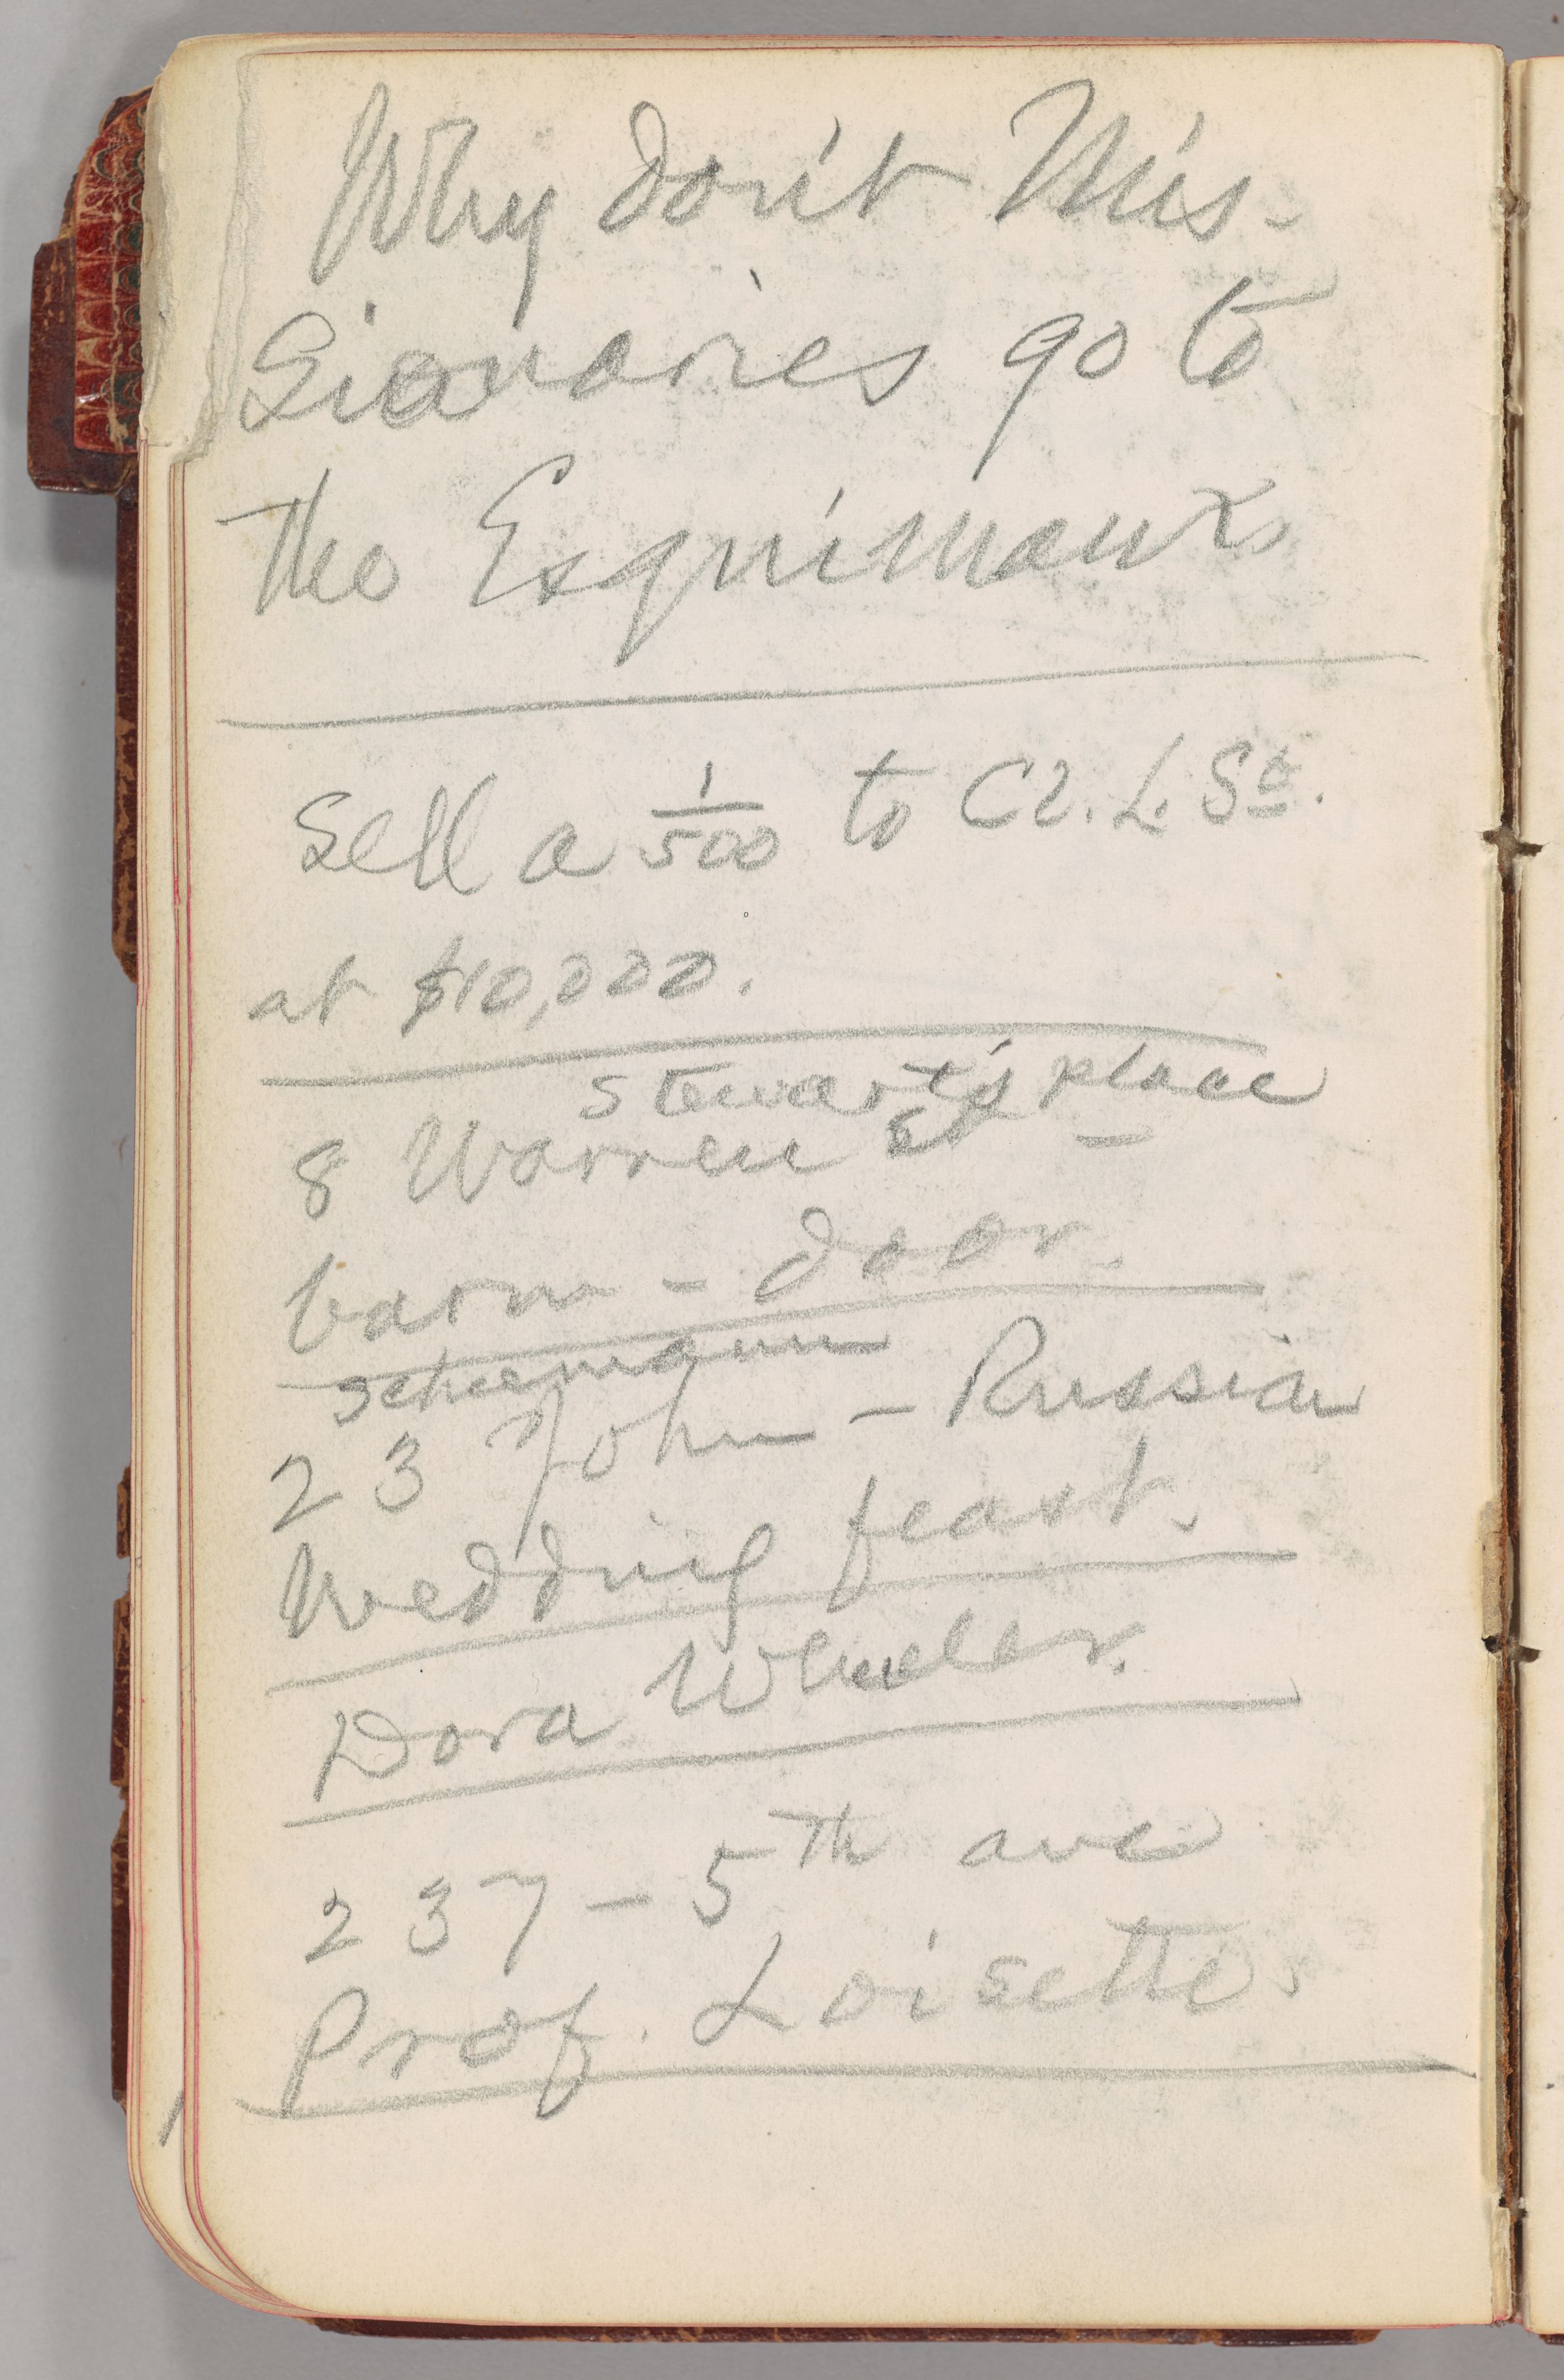 Why don't Mis-
sionaries go to
the Esquimaux
Sell a 1/500 to Cl. L. St.
at $10,000.
Stewart's place
8 Warren St —
barn-door.
Schumann
23 John — Russian
Wedding feast.
Dora Wheeler.
237 – 5th ave
Prof. Loisette